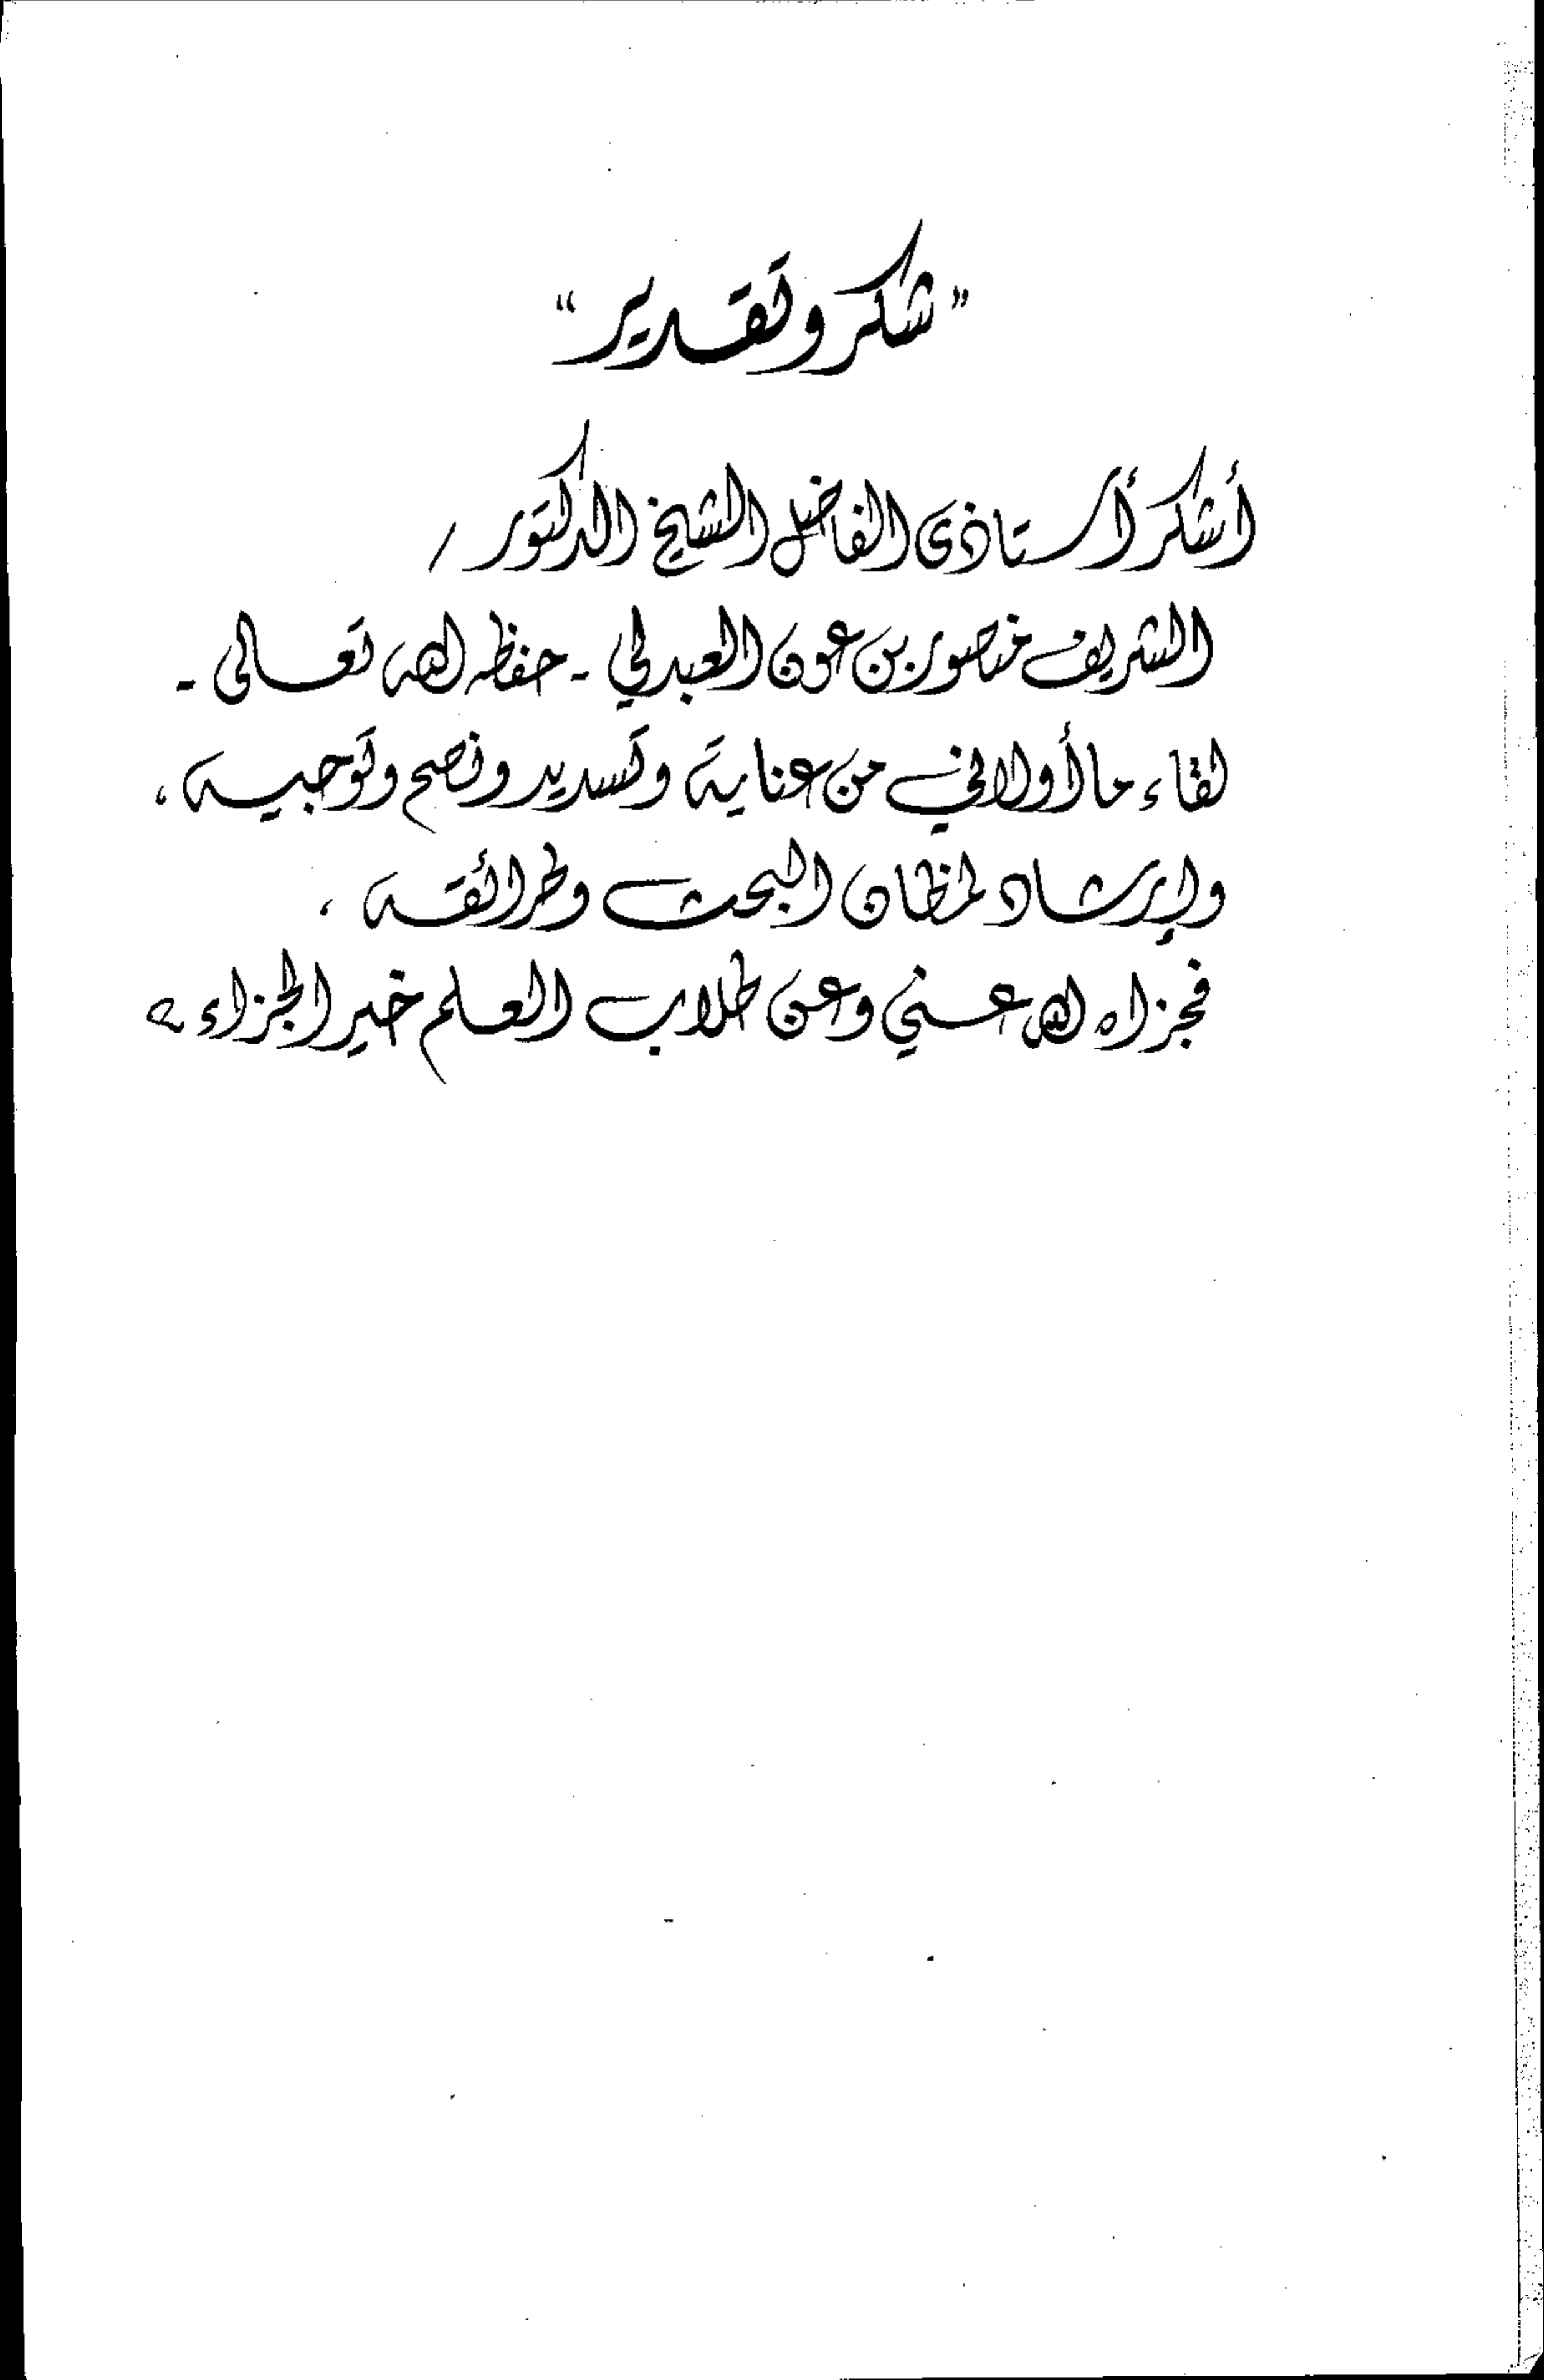 "شكر وتقدير"
أشكر أستاذى الفاضل الشيخ الدكتور /
الشريف منصور بن عون العبدلي - حفظه الله تعالى -
لقاء ما أولاني من عناية وتسديد ونصح وتوجيه ،
وإرشاد لمظان البحث وطرائقه ،
فجزاه الله عني وعن طلاب العلم خير الجزاء